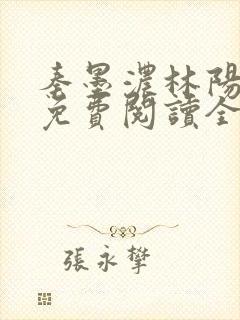 秦墨濃林陽
免費閱讀全
張永攀